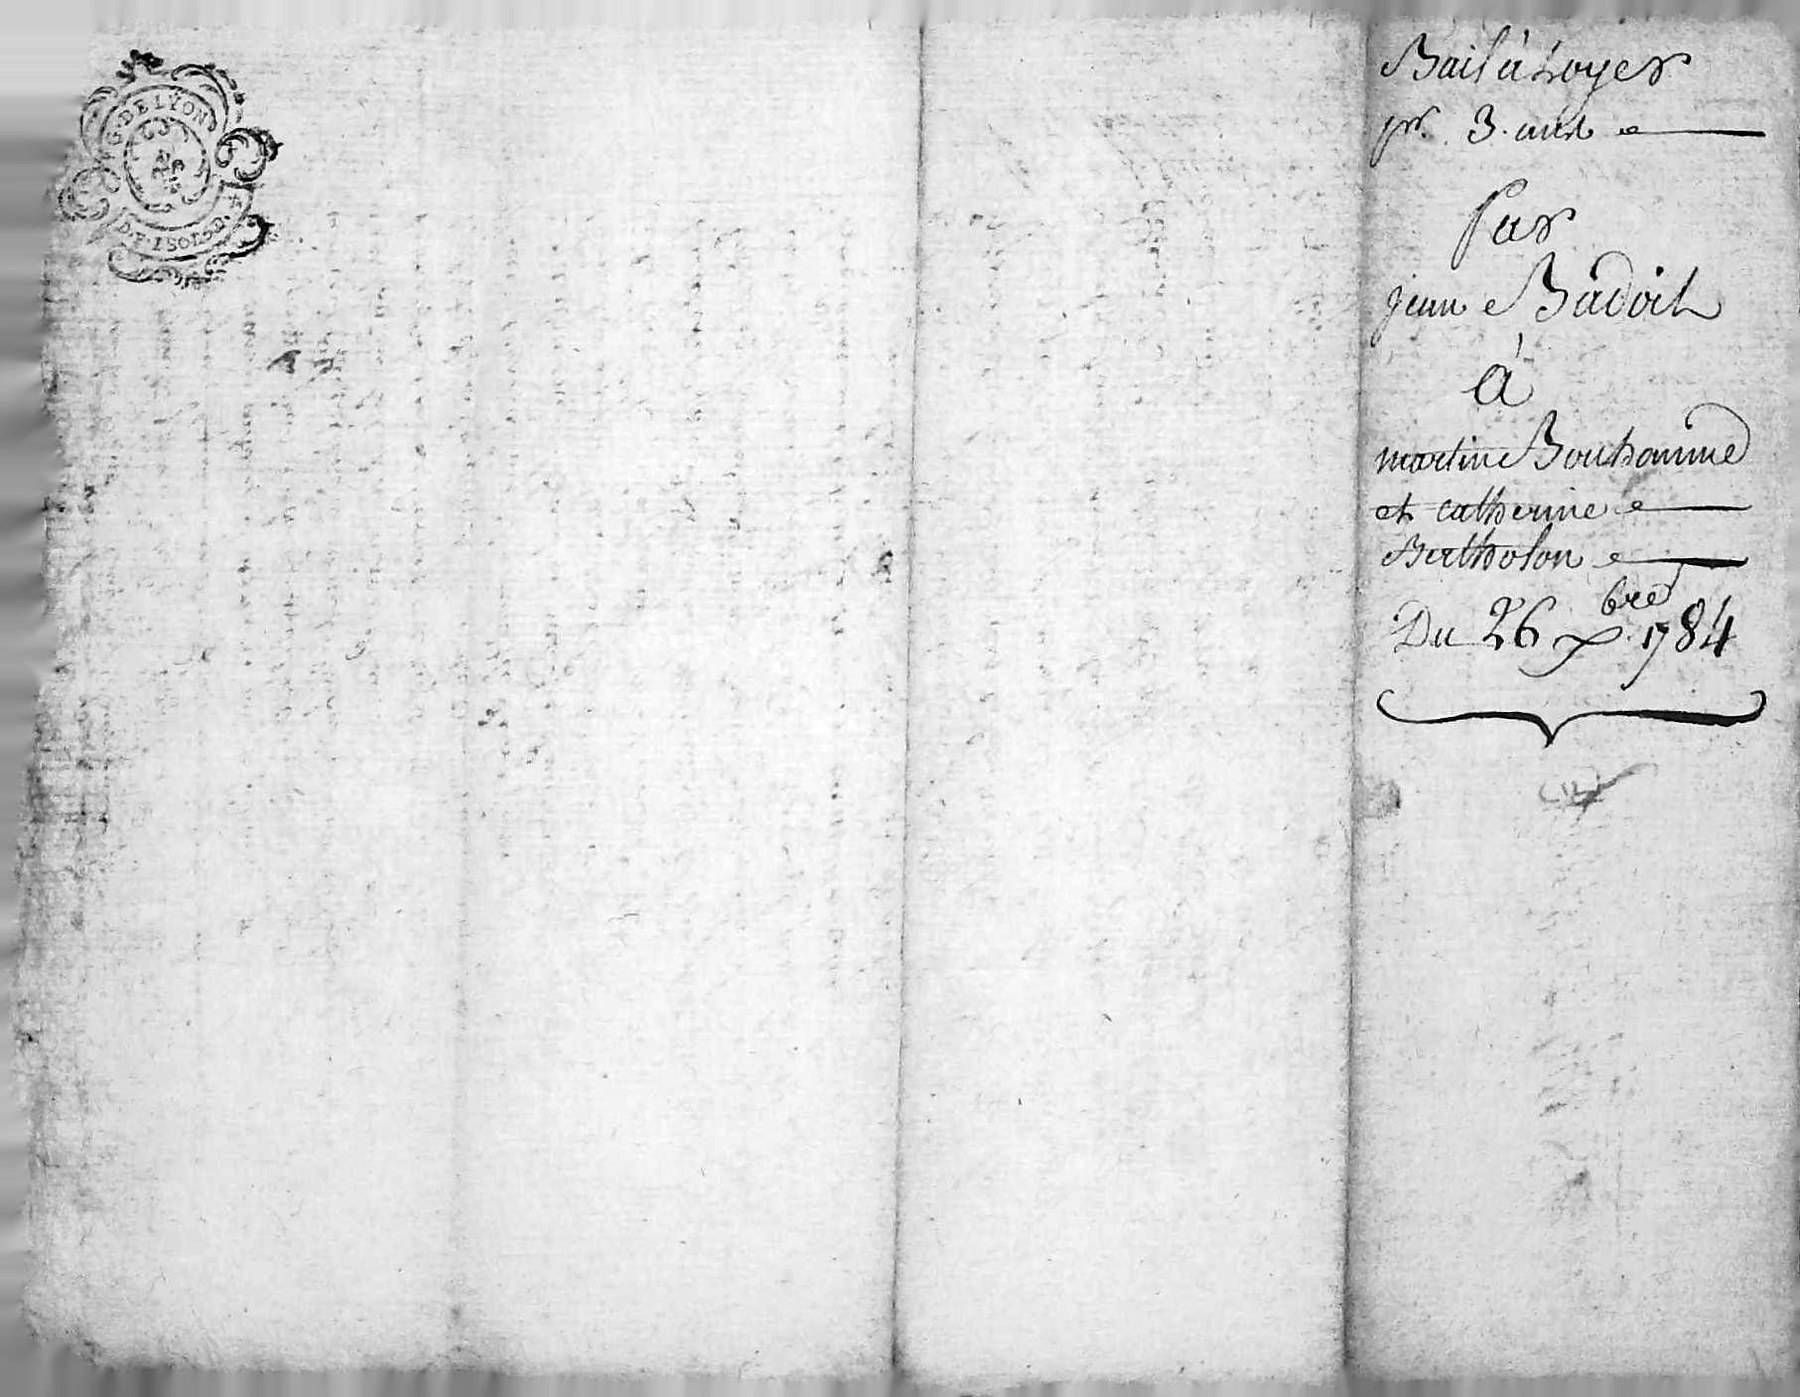 G. DE LYON
Bail à Loyer
pr. 3. ans
Par
jean Badoil
à
martin Bonhomme
et catherine
Bertholon
Du 26 Xbre 1784